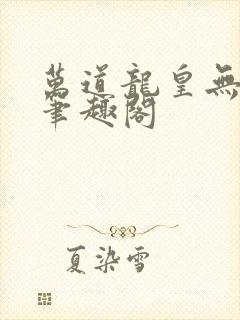 萬道龍皇無
筆趣閣
夏染雪